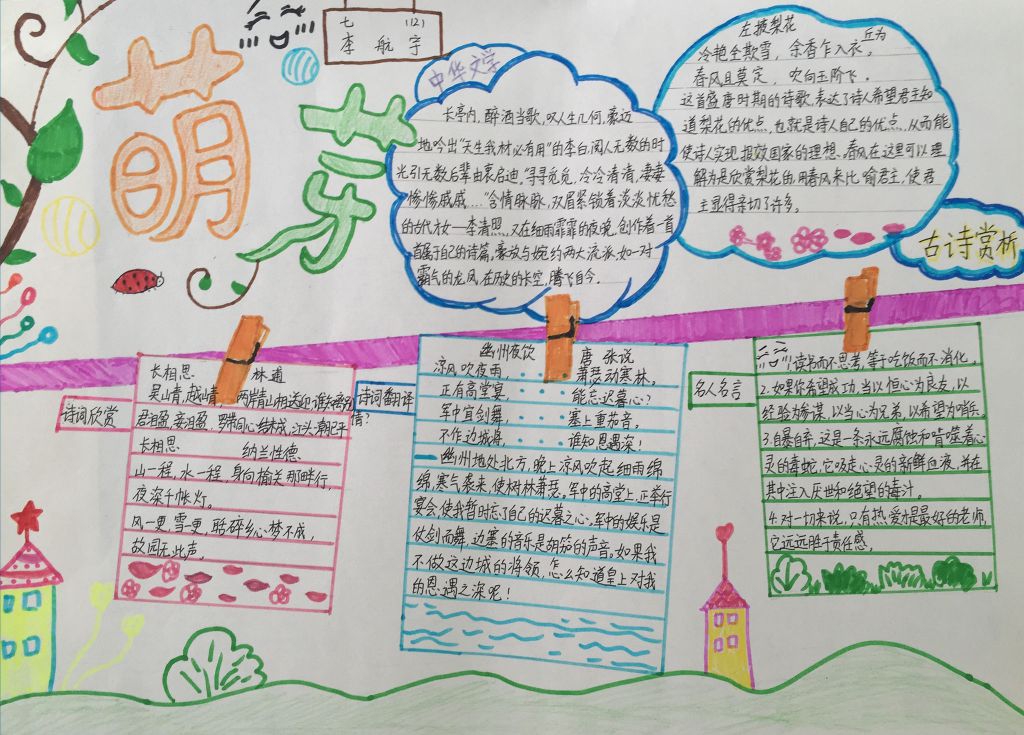 萌芽
七(12)
李航宇
中华文学
长亭内,醉酒当歌,叹人生几何,豪迈
地吟出“天生我材必有用”的李白,阅人无数的时
光引无数后辈由衷启迪。“寻寻觅觅,冷冷清清,凄凄
惨惨戚戚…”含情脉脉,双眉紧锁着淡淡忧愁
的古代才女—李清照,又在细雨霏霏的夜晚,创作着一首
首属于自己的诗篇,豪放与婉约两大流派,如一对
霸气的龙凤,在历史的长空,腾飞至今。
左掖梨花
丘为
冷艳全欺雪,余香乍入衣。
春风且莫定,吹向玉阶飞。
这首盛唐时期的诗歌,表达了诗人希望君主知
道梨花的优点,也就是诗人自己的优点,从而能
使诗人实现报效国家的理想。春风在这里可以理
解为是欣赏梨花的,用春风来比喻君主,使君
主显得亲切了许多。
古诗赏析
诗词欣赏
长相思 林逋
吴山青,越山青,两岸青山相送迎,谁知离别情?
君泪盈,妾泪盈,罗带同心结未成,江头潮已平
长相思 纳兰性德
山一程,水一程,身向榆关那畔行,
夜深千帐灯。
风一更,雪一更,聒碎乡心梦不成,
故园无此声。
诗词翻译
幽州夜饮 唐 张说
凉风吹夜雨,萧瑟动寒林。
正有高堂宴,能忘迟暮心?
军中宜剑舞,塞上重笳音。
不作边城将,谁知恩遇深!
幽州地处北方,晚上凉风吹起,细雨绵
绵,寒气袭来,使树林萧瑟。军中的高堂上,正举行
宴会,使我暂时忘了自己的迟暮之心,军中的娱乐是
仗剑而舞,边塞的音乐是胡笳的声音,如果我
不做这边城的将领,怎么知道皇上对我
的恩遇之深呢!
名人名言
读书而不思考,等于吃饭而不消化。
2.如果你希望成功,当以恒心为良友,以
经验为参谋,以当心为兄弟,以希望为哨兵。
3.自暴自弃,这是一条永远腐蚀和啃噬着心
灵的毒蛇,它吸走心灵的新鲜血液,并在
其中注入厌世和绝望的毒汁。
4.对一切来说,只有热爱才是最好的老师,
它远远胜于责任感。